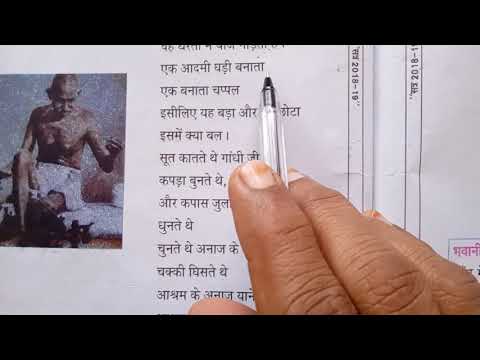 एक आदमी घड़ी बनाता
एक बनाता चप्पल
इसीलिए यह बड़ा और छोटा
इसमें क्या बल ।
सूत कातते थे गांधी जी
कपड़ा बुनते थे,
और कपास
धुनते थे
चुनते थे अनाज के
चक्की घिसते थे
आश्रम के अनाज याने
"सत्र 2018-19"
"सत्र 2018-1
भवानी